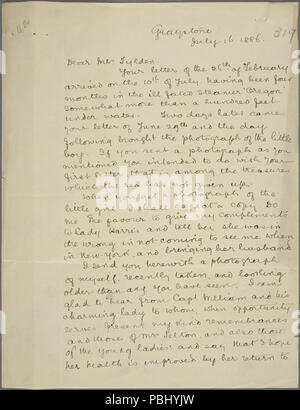 Graystone
July 16. 1886.
319
Dear Mr Tylden.
Your letter of the 26th of February
arrived on the 10th of July, having been four
months in the ill fated steamer "Oregon"
somewhat more than a hundred feet
under water. Two days later came
your letter of June 29th and the day
following brought the photograph of the little
boy. If you sent a photograph as you
mentioned you intended to do with your
first letter that is among the treasures
which the sea has not given up.
When you have a photograph of the
little girl a copy Do
me the favour to give my compliments
to Lady Harris and tell her she was in
the wrong in not coming to see me when
in New York and bringing her husband
I send you herewith a photograph
of myself, recently taken, and looking
older than any you have seen. I am
glad to hear from Capt William and his
charming lady to whom when opportunity
serves present my kind remembrances
and those of Mr Selton, and also those
of the young ladies and say that I hope
her health is improved by her return to
alamy stock photo
alamy
Image ID: PBHYJW
www.alamy.com